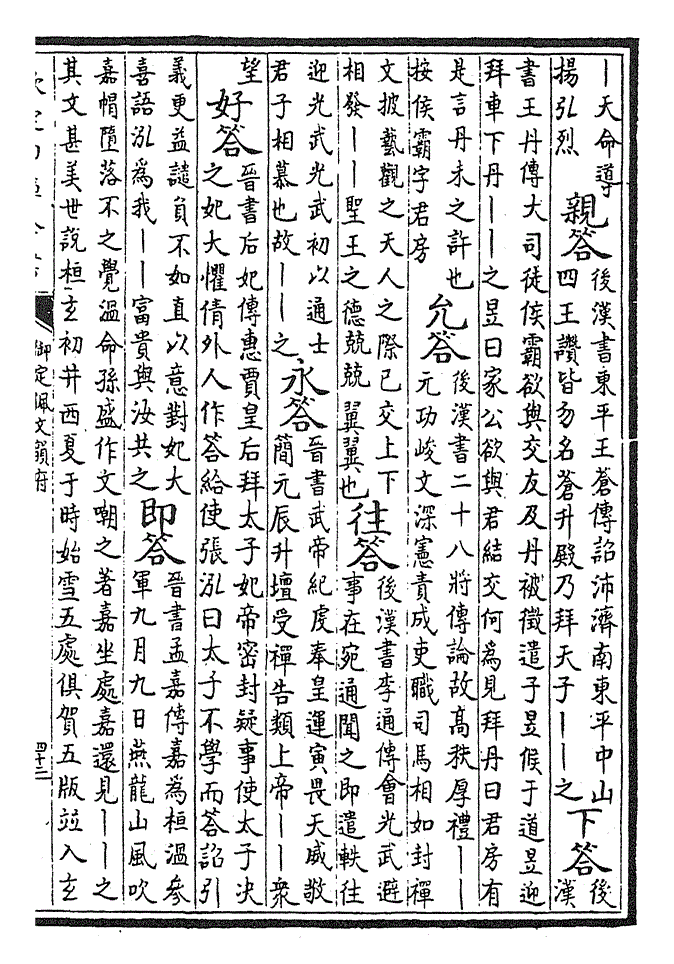 ｜天命導
揚弘烈
親答
後漢書東平王蒼傳詔沛濟南東平中山
四王讚皆勿名蒼升殿乃拜天子｜｜之
下答
後
漢
書王丹傳大司徒侯霸欲與交友及丹被徵遣子昱候于道昱迎
拜車下丹｜｜之昱曰家公欲與君結交何為見拜丹曰君房有
是言丹未之許也
按侯霸字君房
允答
後漢書二十八將傳論故高秩厚禮｜｜
元功峻文深憲責成吏職司馬相如封禪
文披藝觀之天人之際已交上下
相發｜｜聖王之德兢兢翼翼也
往答
後漢書李通傳會光武避
事在宛通聞之即遣軼往
迎光武光武初以通士
君子相慕也故｜｜之
永答
晉書武帝紀虔奉皇運寅畏天威敬
簡元辰升壇受禪告類上帝｜｜衆
望
好答
晉書后妃傳惠賈皇后拜太子妃帝密封疑事使太子决
之妃大懼倩外人作答給使張泓曰太子不學而答詔引
義更益譴負不如直以意對妃大
喜語泓為我｜｜富貴與汝共之
即答
晉書孟嘉傳嘉為桓温參
軍九月九日燕龍山風吹
嘉帽墮落不之覺温命孫盛作文嘲之著嘉坐處嘉還見｜｜之
其文甚美世說桓玄初并西夏于時始雪五處俱賀五版並入玄
欽定四庫全書
御定佩文韻府
四十三